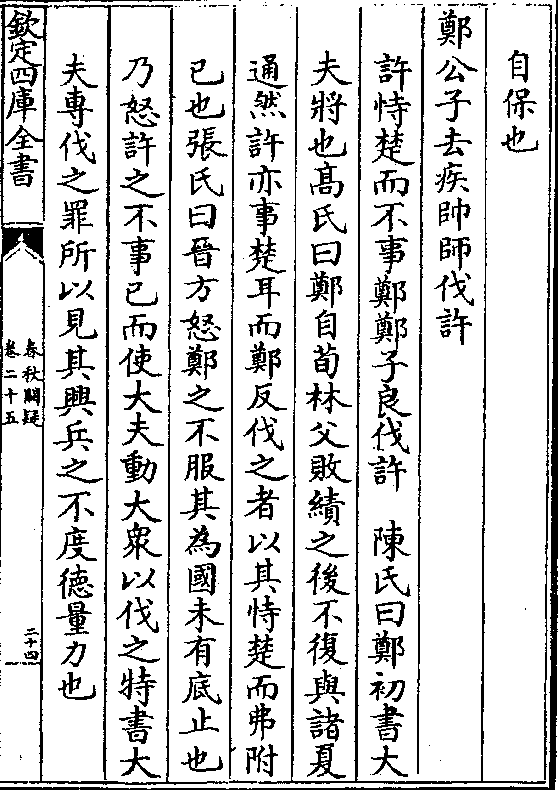 自保也
鄭公子去疾帥師伐許
許恃楚而不事鄭鄭子良伐許　陳氏曰鄭初書大
夫將也髙氏曰鄭自荀林父敗績之後不復與諸夏
通然許亦事楚耳而鄭反伐之者以其恃楚而弗附
已也張氏曰晉方怒鄭之不服其為國未有底止也
乃怒許之不事已而使大夫動大衆以伐之特書大
夫專伐之罪所以見其興兵之不度德量力也
欽定四庫全書
春秋闕疑
卷二十五
二十四